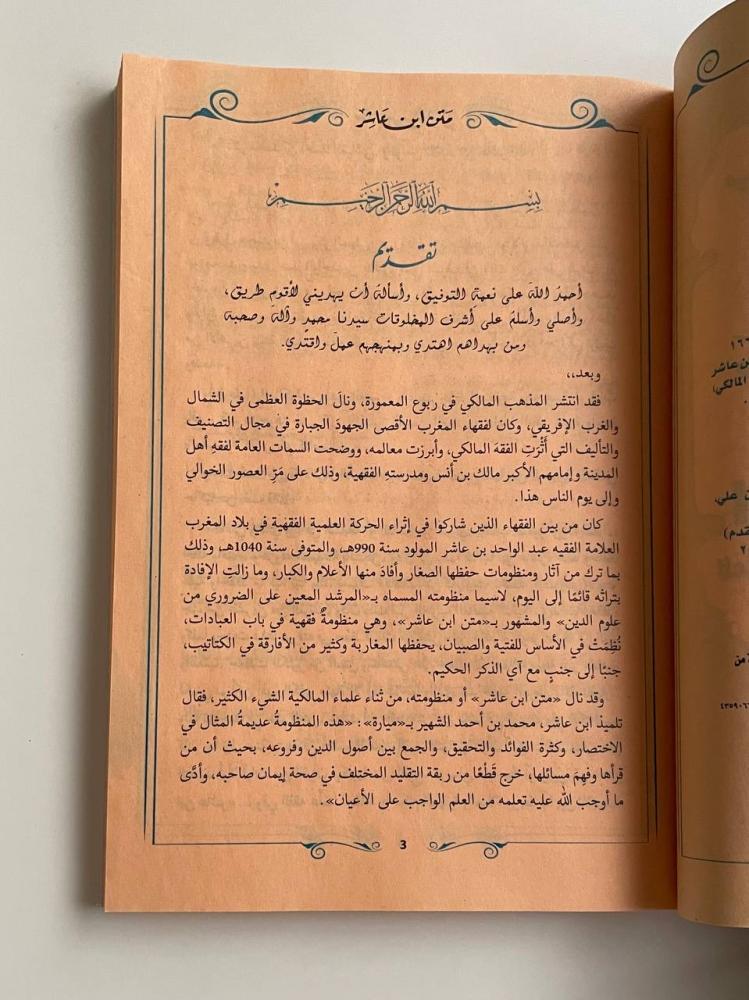 مَتن ابن عَاشِر
بِسْمِ اللَّهِ الرَّحْمَنِ الرَّحِيمِ
تقديم
أحمدُ اللهَ على نعمة التوفيق، وأسألهُ أن يهديني لأقوم طريق،
وأصلي وأسلم على أشرف المخلوقات سيدنا محمدٍ وآلهِ وصحبهِ
ومن بهداهم اهتدى وبمنهجهم عملَ واقتدى.
وبعد،،
فقد انتشر المذهب المالكي في ربوع المعمورة، ونالَ الحظوة العظمى في الشمال
والغرب الإفريقي، وكان لفقهاء المغرب الأقصى الجهودَ الجبارة في مجال التصنيف
والتأليف التي أَثْرَتِ الفقهَ المالكي، وأبرزت معالمه، ووضحت السمات العامة لفقهِ أهل
المدينة وإمامهم الأكبر مالك بن أنس ومدرستهِ الفقهية، وذلك على مَرِّ العصور الخوالي
وإلى يوم الناس هذا.
كان من بين الفقهاء الذين شاركوا في إثراء الحركة العلمية الفقهية في بلاد المغرب
العلامة الفقيه عبد الواحد بن عاشر المولود سنة 990هـ، والمتوفى سنة 1040هـ، وذلك
بما ترك من آثار ومنظومات حفظها الصغار وأفادَ منها الأعلام والكبار، وما زالتِ الإفادة
بتراثه قائمًا إلى اليوم، لاسيما منظومته المسماه بـ«المرشد المعين على الضروري من
علوم الدين» والمشهور بـ«متن ابن عاشر»، وهي منظومةٌ فقهية في باب العبادات،
نُظِمَتْ في الأساس للفتية والصبيان، يحفظها المغاربة وكثير من الأفارقة في الكتاتيب،
جنبًا إلى جنبٍ مع آي الذكر الحكيم.
وقد نال «متن ابن عاشر» أو منظومته، من ثناء علماء المالكية الشيء الكثير، فقال
تلميذ ابن عاشر، محمد بن أحمد الشهير بـ«ميارة»: «هذه المنظومةُ عديمةُ المثال في
الاختصار، وكثرة الفوائد والتحقيق، والجمع بين أصول الدين وفروعه، بحيث أن من
قرأها وفهِمَ مسائلها، خرج قَطْعًا من ربقة التقليد المختلف في صحة إيمان صاحبه، وأدَّى
ما أوجب الله عليه تعلمه من العلم الواجب على الأعيان».
3
١٦٦
بن عاشر
المالكي)
ن علي
قدم)
٢
ة من